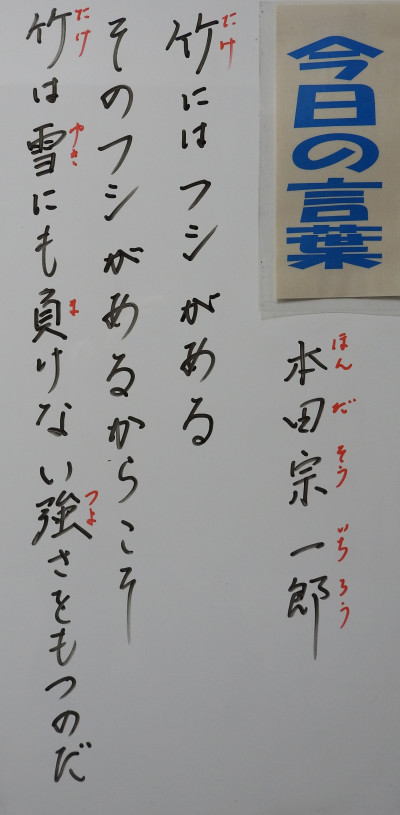 今日の言葉
本田宗一郎
ほんだそういちろう
竹にはフシがある
たけ
そのフシがあるからこそ
竹は雪にも負けない強さをもつのだ
たけ ゆき ま つよ